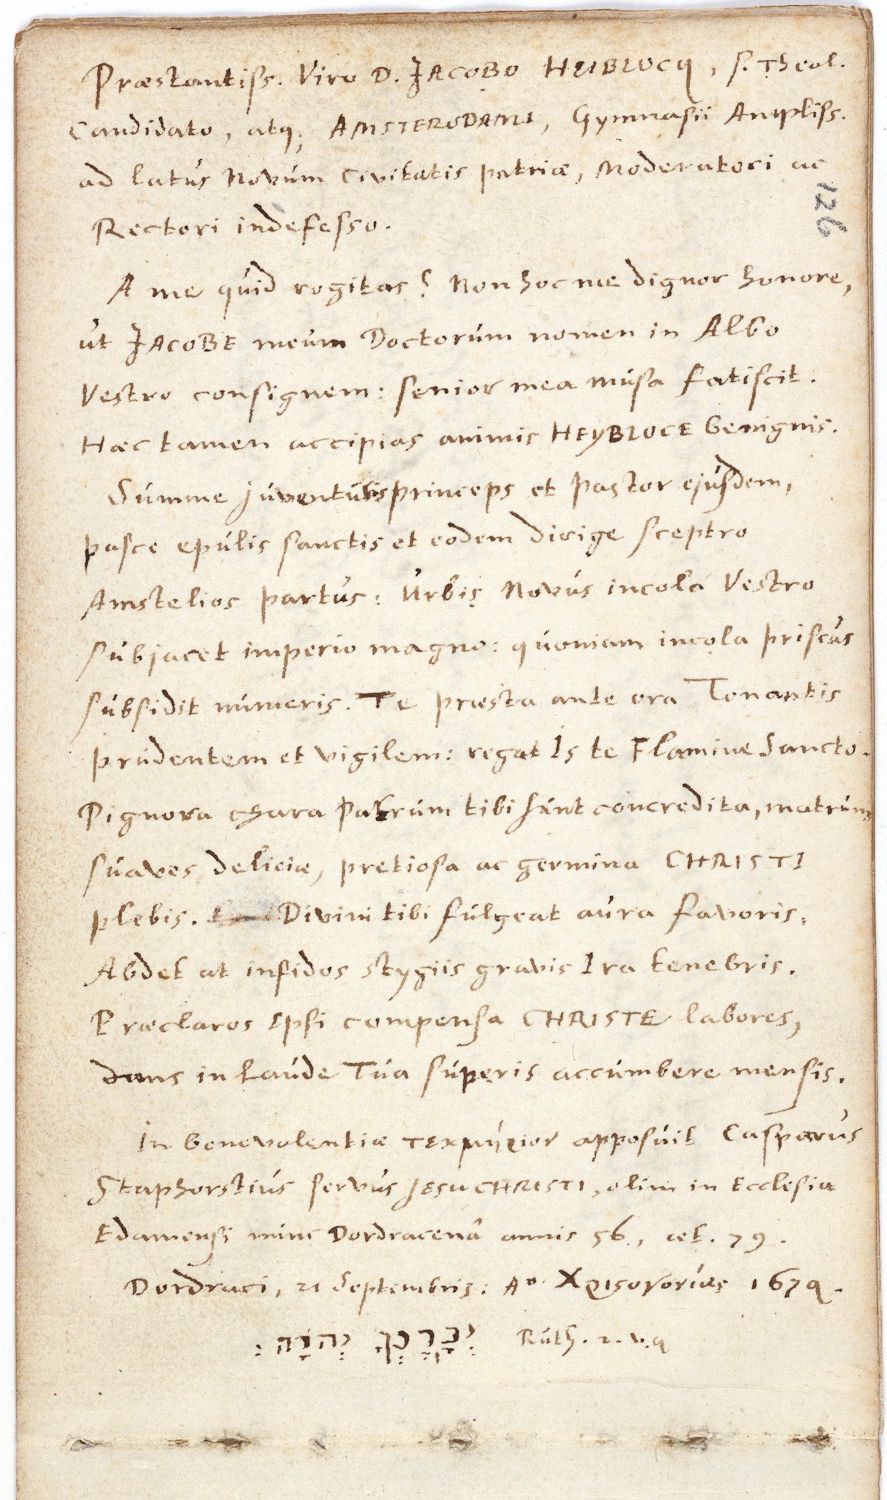 Præstantiss. Viro D. JACOBO HEIBLOCQ, s. Theol.
Candidato, atq; AMSTERODAMI, Gymnasii Ampliss.
ad latus Novúm civitatis patriæ, Moderatori ac
126
Rectori indefesso.
A me qúid rogitas? Non hoc me dignor honore,
út JACOBE meúm Doctorúm nomen in Albo
Vestro consignem: senior mea músa fatiscit.
Hæc tamen accipias animis HEYBLOCE benignis.
Súmme júventútis princeps et pastor ejúsdem,
pasce epúlis sanctis et eodem dirige sceptro
Amstelios partús: Úrbis Novús incola Vestro
súbjacet imperio magno: qúoniam incola priscús
súbsidit númeris. Te præsta ante ora Tonantis
prúdentem et vigilem: regat Is te Flamine Sancto.
Pignora chara Patrúm tibi súnt concredita, matrúm
súaves deliciæ, pretiosa ac germina CHRISTI
plebis. Divini tibi fúlgeat aúra favoris,
Abdet at infidos stygiis gravis Ira tenebris.
Præclaros Ipsi compensa CHRISTE labores,
dans in Laúde Túa súperis accúmbere mensis.
In benevolentiæ τεκμήριον apposúit Casparús
Staphorstiús servús JESU CHRISTI, olim in Ecclesia
Edamensi núnc Dordracenâ annis 56, æt. 79.
Dordraci, 21 Septembris: Aº Χριστογονίας 1679.
יְבָרֶכְךָ יְהוָה: Rúth. 2. v. 4